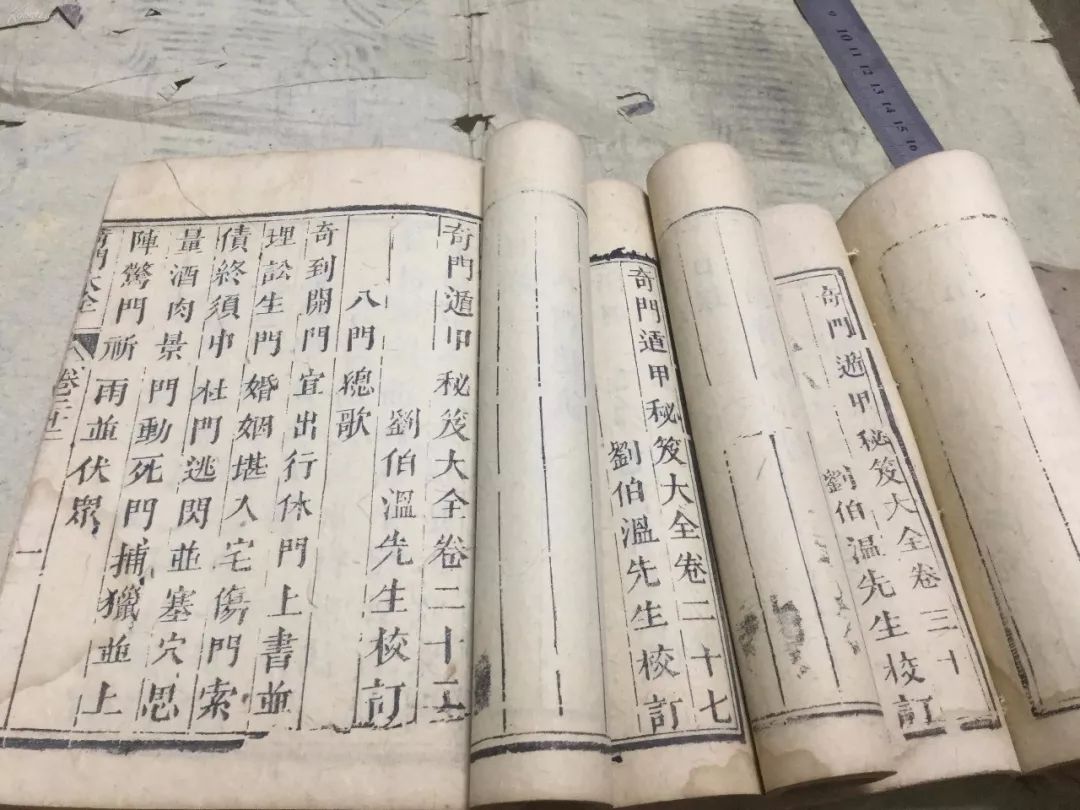 奇門遁甲秘笈大全卷三十
劉伯溫先生校訂
奇門遁甲秘笈大全卷二十七
劉伯溫先生校訂
奇門遁甲秘笈大全卷二十二
劉伯溫先生校訂
八門緫歌
奇到開門宜出行休門上書並
理訟生門婚姻堪入宅傷門索
債終須中杜門逃閃並塞穴思
量酒肉景門動死門捕獵並上
陣驚門祈雨並伏眾
奇門大全 卷 一
9 10 11 12 13 14 15 16